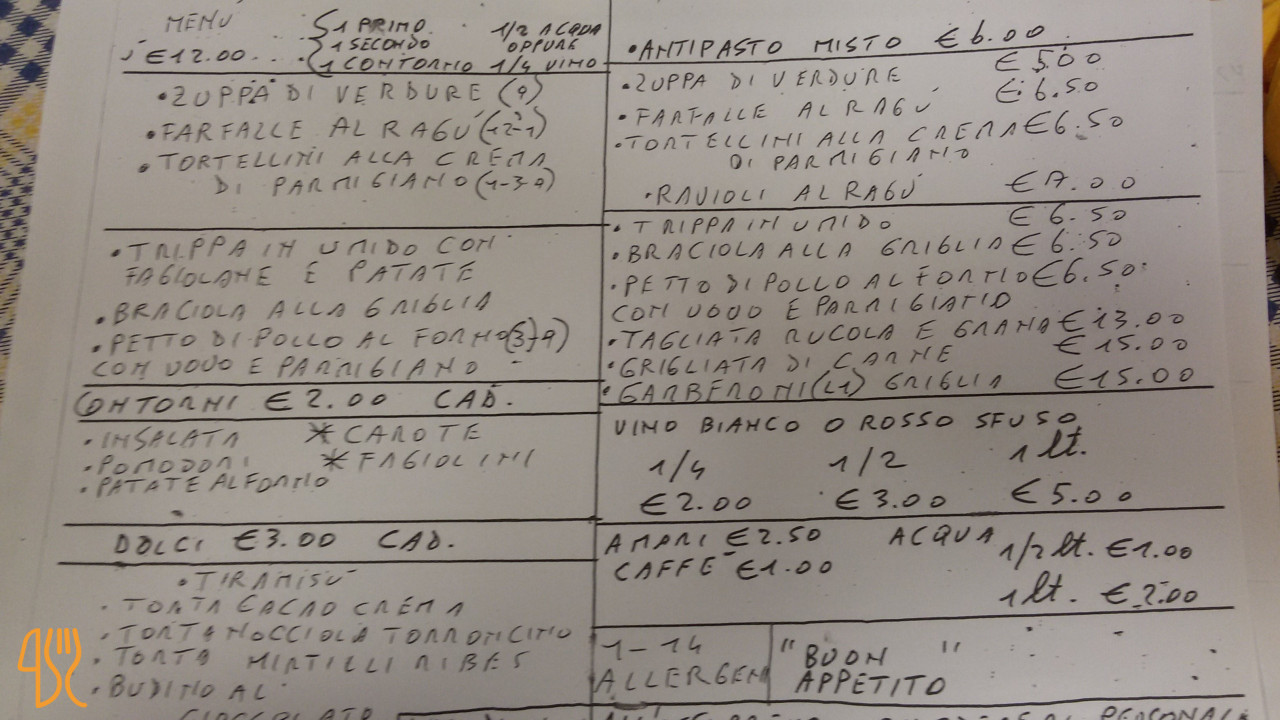 MENU
€12.00
1 PRIMO
1 SECONDO
1 CONTORNO
1/2 ACQUA
OPPURE
1/4 VINO
• ZUPPA DI VERDURE (9)
• FARFALLE AL RAGÚ
• TORTELLINI ALLA CREMA
DI PARMIGIANO (1-3-9)
• TRIPPA IN UMIDO CON
FAGIOLANE E PATATE
• BRACIOLA ALLA GRIGLIA
• PETTO DI POLLO AL FORNO
CON UOVO E PARMIGIANO
CONTORNI €2.00 CAD.
• INSALATA * CAROTE
• POMODORI * FAGIOLINI
• PATATE AL FORNO
DOLCI €3.00 CAD.
• TIRAMISÙ
• TORTA CACAO CREMA
• TORTA NOCCIOLA TORRONCINO
• TORTA MIRTILLI RIBES
• BUDINO AL
CIOCCOLATO
• ANTIPASTO MISTO €6.00
• ZUPPA DI VERDURE €5.00
• FARFALLE AL RAGÚ €6.50
• TORTELLINI ALLA CREMA €6.50
DI PARMIGIANO
• RAVIOLI AL RAGÚ €7.00
• TRIPPA IN UMIDO €6.50
• BRACIOLA ALLA GRIGLIA €6.50
• PETTO DI POLLO AL FORNO €6.50
CON UOVO E PARMIGIANO
• TAGLIATA RUCOLA E GRANA €13.00
• GRIGLIATA DI CARNE €15.00
• GAMBERONI GRIGLIA €15.00
VINO BIANCO O ROSSO SFUSO
1/4 1/2 1 lt.
€2.00 €3.00 €5.00
AMARI €2.50
CAFFÈ €1.00
ACQUA 1/2 lt. €1.00
1 lt. €2.00
1-14
ALLERGENI
"BUON "
APPETITO